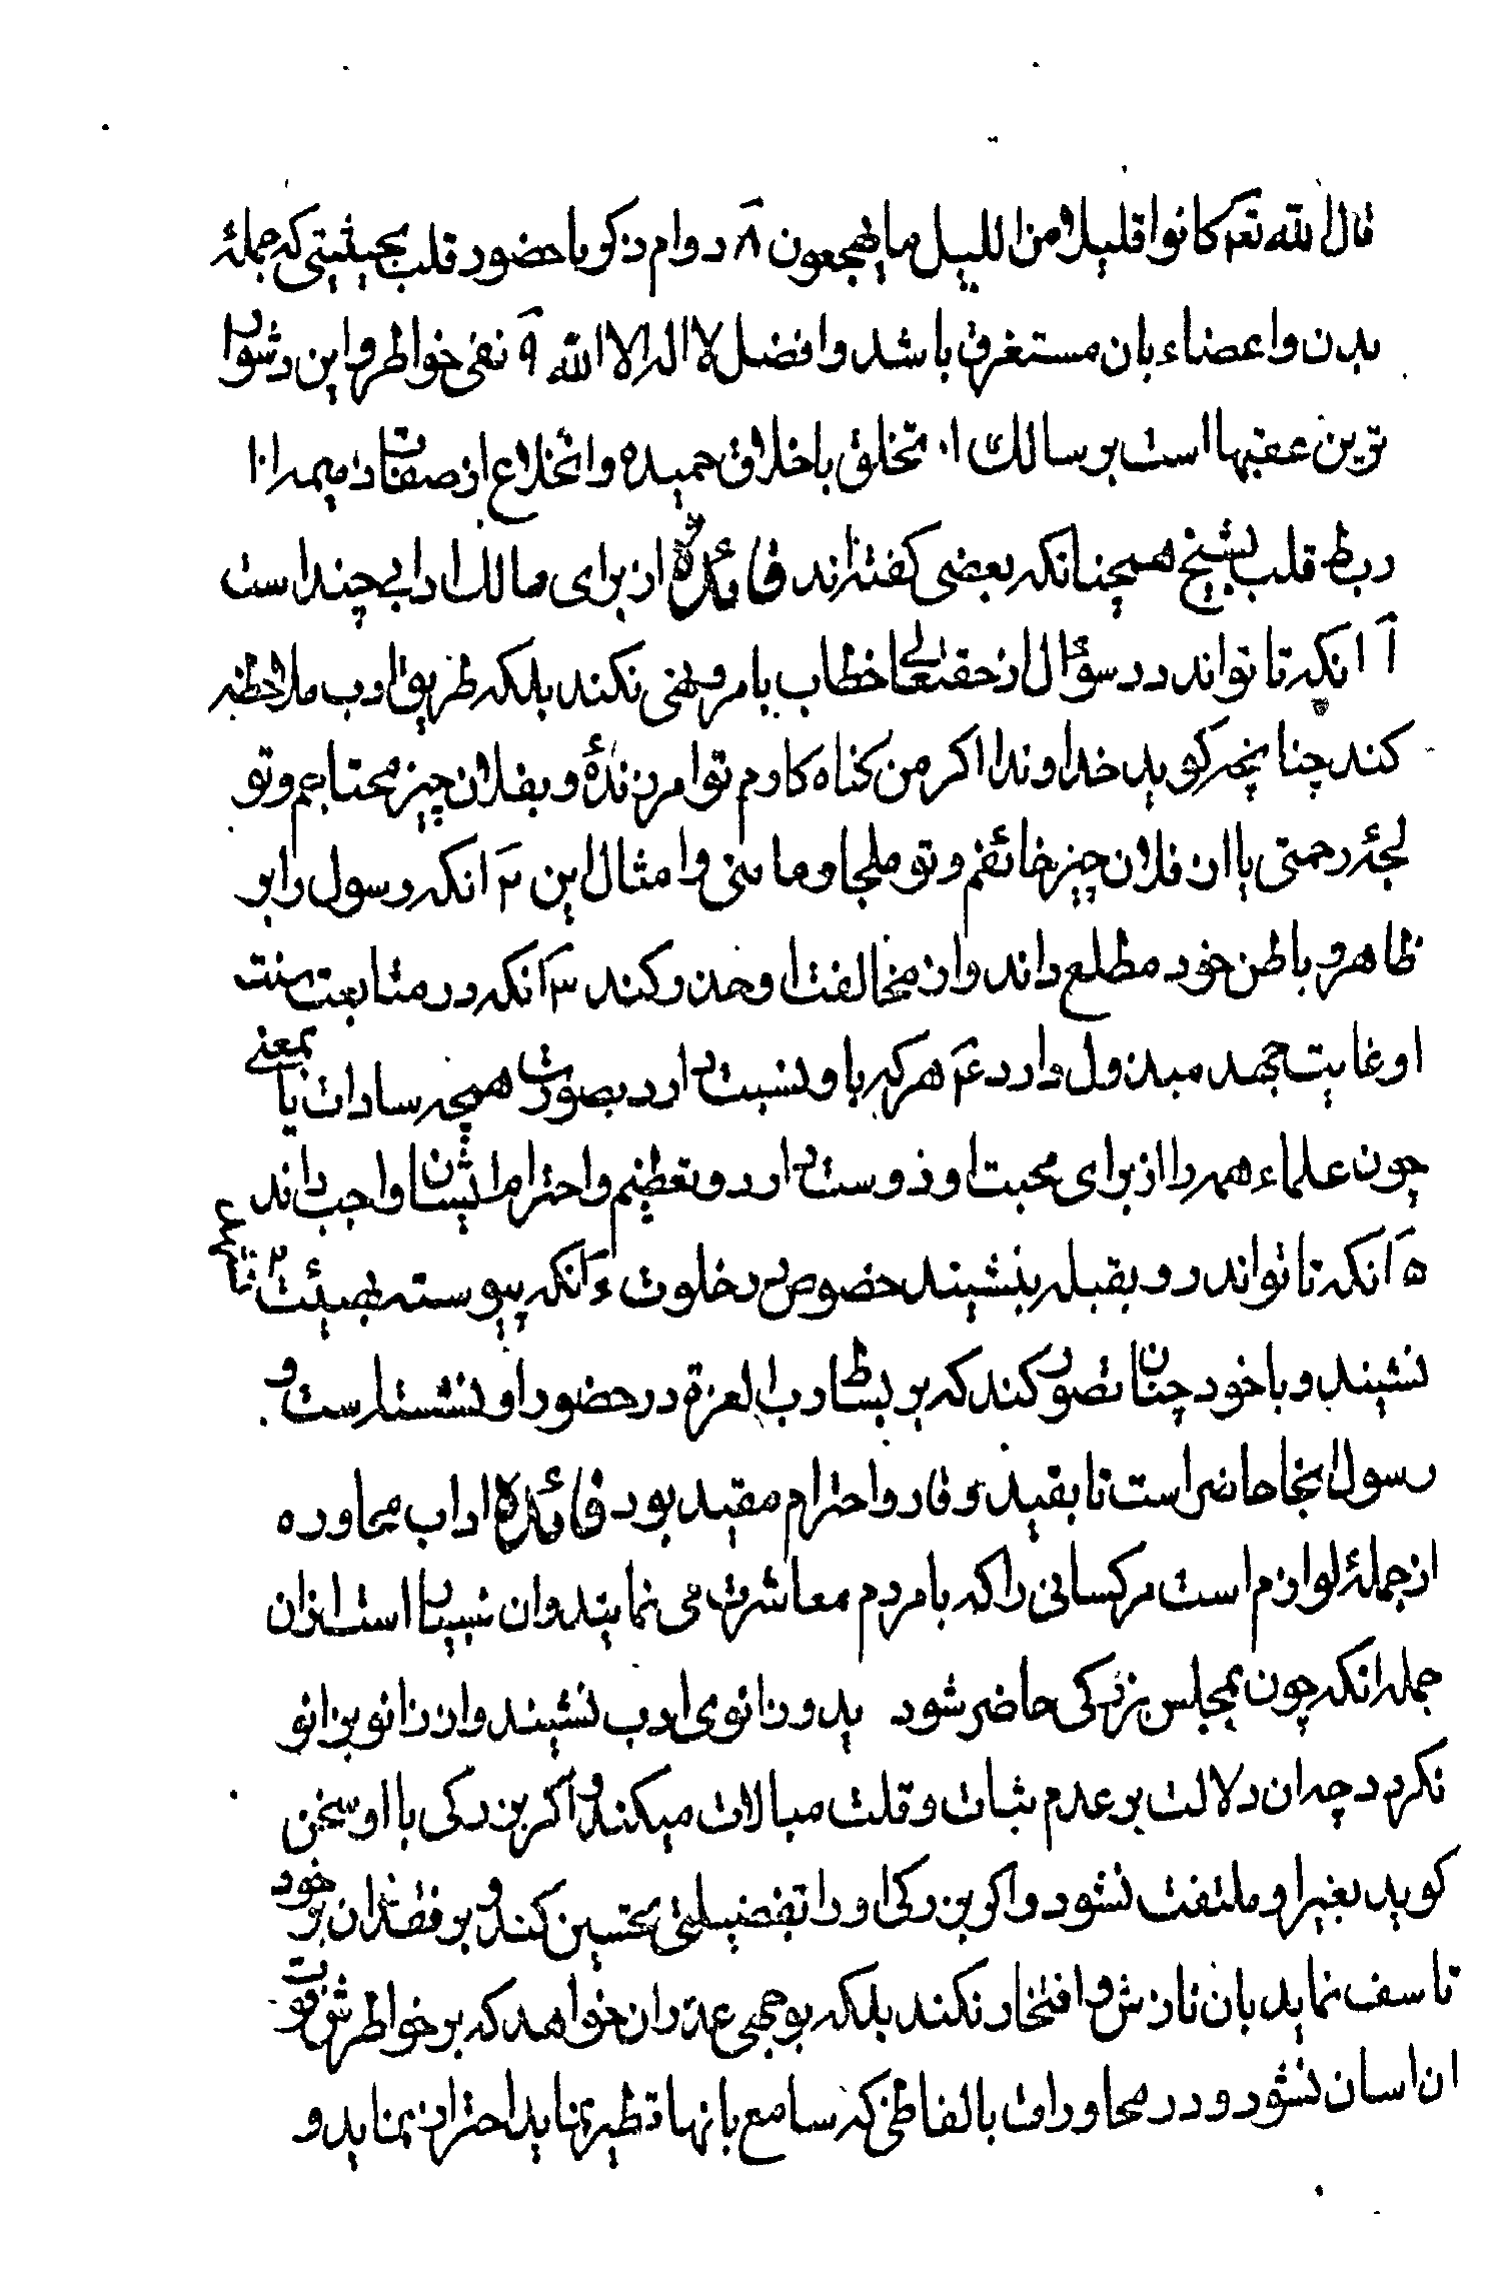 قال الله تع کانوا قلیلا من اللیل ما یهجعون ۸ دوام ذکر با حضور قلب بحیثیتی که جملهٔ
بدن و اعضاء بان مستغرق باشد و افضل لا اله الا الله ۹ نفی خواطر و این دشوار
ترین عقبها است بر سالک ۱۰ تخلق باخلاق حمیده و انخلاع از صفات ذمیمه ۱۱
ربط قلب بشیخ همچنانکه بعضی کفته‌اند فائدة از برای سالک ادابی چند است
۱ انکه تا تواند در سؤال از حقتعالی خطاب بامر و نهی نکند بلکه طریق ادب ملاحظه
کند چنانچه کوید خداوندا اکر من کناه کارم تو امرزندهٔ و بفلان چیز محتاجم و تو
لجهٔ رحمتی یا از فلان چیز خائفم و تو ملجا و مامنی و امثال این ۲ انکه رسول را بر
ظاهر و باطن خود مطلع داند و از مخالفت او حذر کند ۳ انکه در متابعت سنت
او غایت جهد مبذول دارد ۴ هر که باو نسبت دارد بصورت همچه سادات یا بمعنی
چون علماء همه را از برای محبت او دوست دارد و تعظیم و احترام ایشان واجب داند
۵ انکه تا تواند رو بقبله بنشیند خصوص در خلوت ۶ انکه پیوسته بهیئت
نشیند و با خود چنان تصور کند که بر بساط رب العزة در حضور او نشسته است و
رسول انجا حاضر است تا بقید وقار و احترام مقید بود فائدة اداب محاوره
از جملهٔ لوازم است مر کسانی را که با مردم معاشرت می نمایند و ان بسیار است از ان
جمله انکه چون بمجلس بزرکی حاضر شود بدو زانوی ادب نشیند و از زانو بزانو
نکردد چه ان دلالت بر عدم ثبات و قلت مبالات میکند و اکر بزرکی با او سخن
کوید بغیر او ملتفت نشود و اکر بزرکی او را بفضیلتی تحسین کند و بر فقدان خود
تاسف نماید بان نازش و افتخار نکند بلکه بوجهی عذر ان خواهد که بر خواطرش فوت
ان اسان نشود و در محاورات بالفاظی که سامع بانها تطیر نماید احتراز نماید و